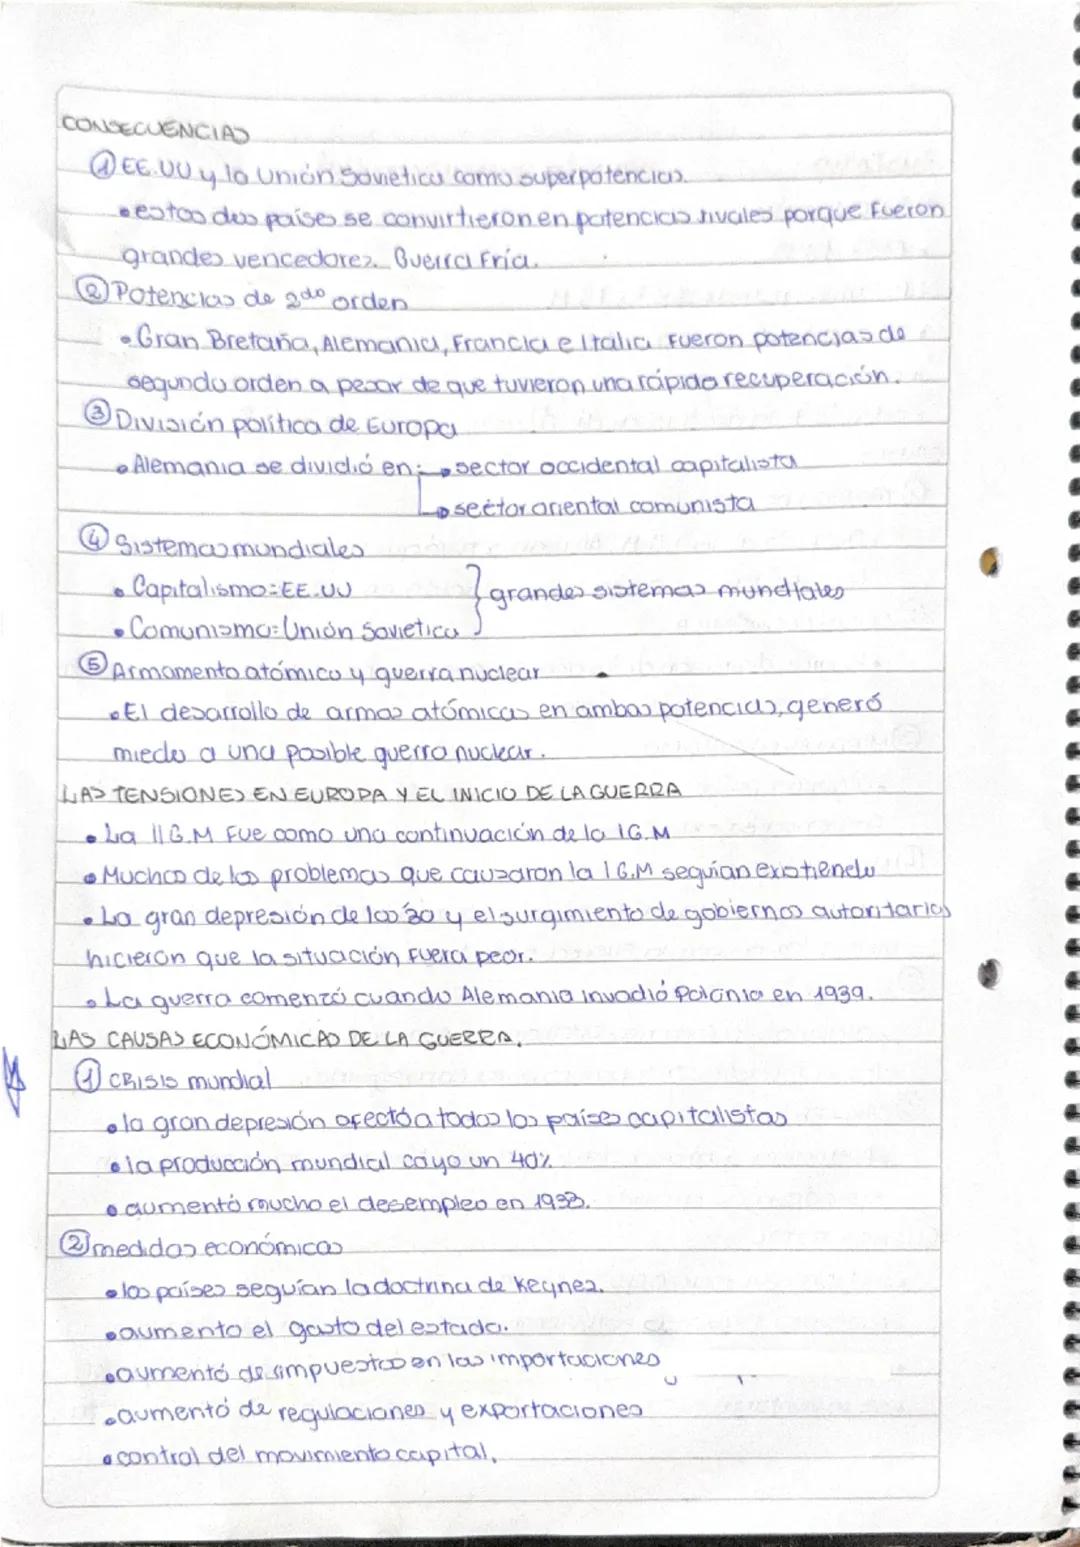 CONSECUENCIAS
① EE.UU y la Unión Soviética como superpotencias.
• estos dos países se convirtieron en potencias rivales porque fueron
grandes vencedores. Guerra Fría.
② Potencias de 2do orden
• Gran Bretaña, Alemania, Francia e Italia fueron potencias de
segundo orden a pesar de que tuvieron una rápida recuperación.
③ División política de Europa
• Alemania se dividió en: sector occidental capitalista
sector oriental comunista
④ Sistemas mundiales
• Capitalismo: EE.UU } grandes sistemas mundiales
• Comunismo: Unión Soviética
⑤ Armamento atómico y guerra nuclear
• El desarrollo de armas atómicas en ambas potencias, generó
miedo a una posible guerra nuclear.
LAS TENSIONES EN EUROPA Y EL INICIO DE LA GUERRA
• La II G.M fue como una continuación de la I G.M
• Muchos de los problemas que causaron la I G.M seguían existiendo
• La gran depresión de los 30 y el surgimiento de gobiernos autoritarios
hicieron que la situación fuera peor.
• La guerra comenzó cuando Alemania invadió Polonia en 1939.
LAS CAUSAS ECONÓMICAS DE LA GUERRA.
① CRISIS mundial
• la gran depresión afectó a todos los países capitalistas
• la producción mundial cayo un 40%
• aumentó mucho el desempleo en 1933.
② medidas económicas
• los países seguían la doctrina de Keynes.
• aumento el gasto del estado.
• aumentó de impuestos en las importaciones
• aumentó de regulaciones y exportaciones
• control del movimiento capital.